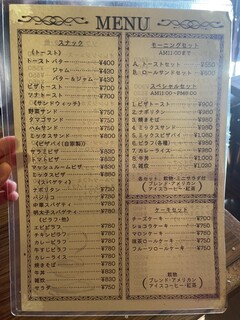 MENU
スナック
(トースト)
トースト バター ¥400
ジャム ¥430
バター&ジャム ¥430
ピザトースト ¥700
ツナトースト ¥700
(サンドウィッチ)
野菜サンド ¥750
タマゴサンド ¥750
ハムサンド ¥750
ミックスサンド ¥800
(ピザパイ(自家製))
サラミピザ ¥750
トマトピザ ¥750
マッシュルームピザ ¥750
ミックスピザ ¥860
(スパゲティ)
ナポリタン ¥750
バジリコ ¥750
中華スパゲティ ¥750
明太子スパゲティ ¥750
(ピラフ・他)
エビピラフ ¥750
チキンピラフ ¥750
カレーピラフ ¥750
カレーライス ¥750
焼きそば ¥750
牛丼 ¥750
雑炊 ¥750
サラダ ¥750
モーニングセット
AM11:00まで
A. トーストセット
B. ロールサンドセット
スペシャルセット
1.ピザトースト
2.ナポリタン
3.焼きそば
4.ミックスサンド
5.ミックスピザパイ
6.ピラフ(各種)
7.カレーライス
8.牛丼
9.雑炊
各セット
ブレンド・アメリカン
アイスコーヒー・紅茶
ケーキセット
チーズケーキ ¥780
ショコラケーキ ¥780
マロンケーキ ¥780
抹茶ロールケーキ ¥780
フルーツロールケーキ ¥780
飲物
ブレンド・アメリカン
アイスコーヒー・紅茶